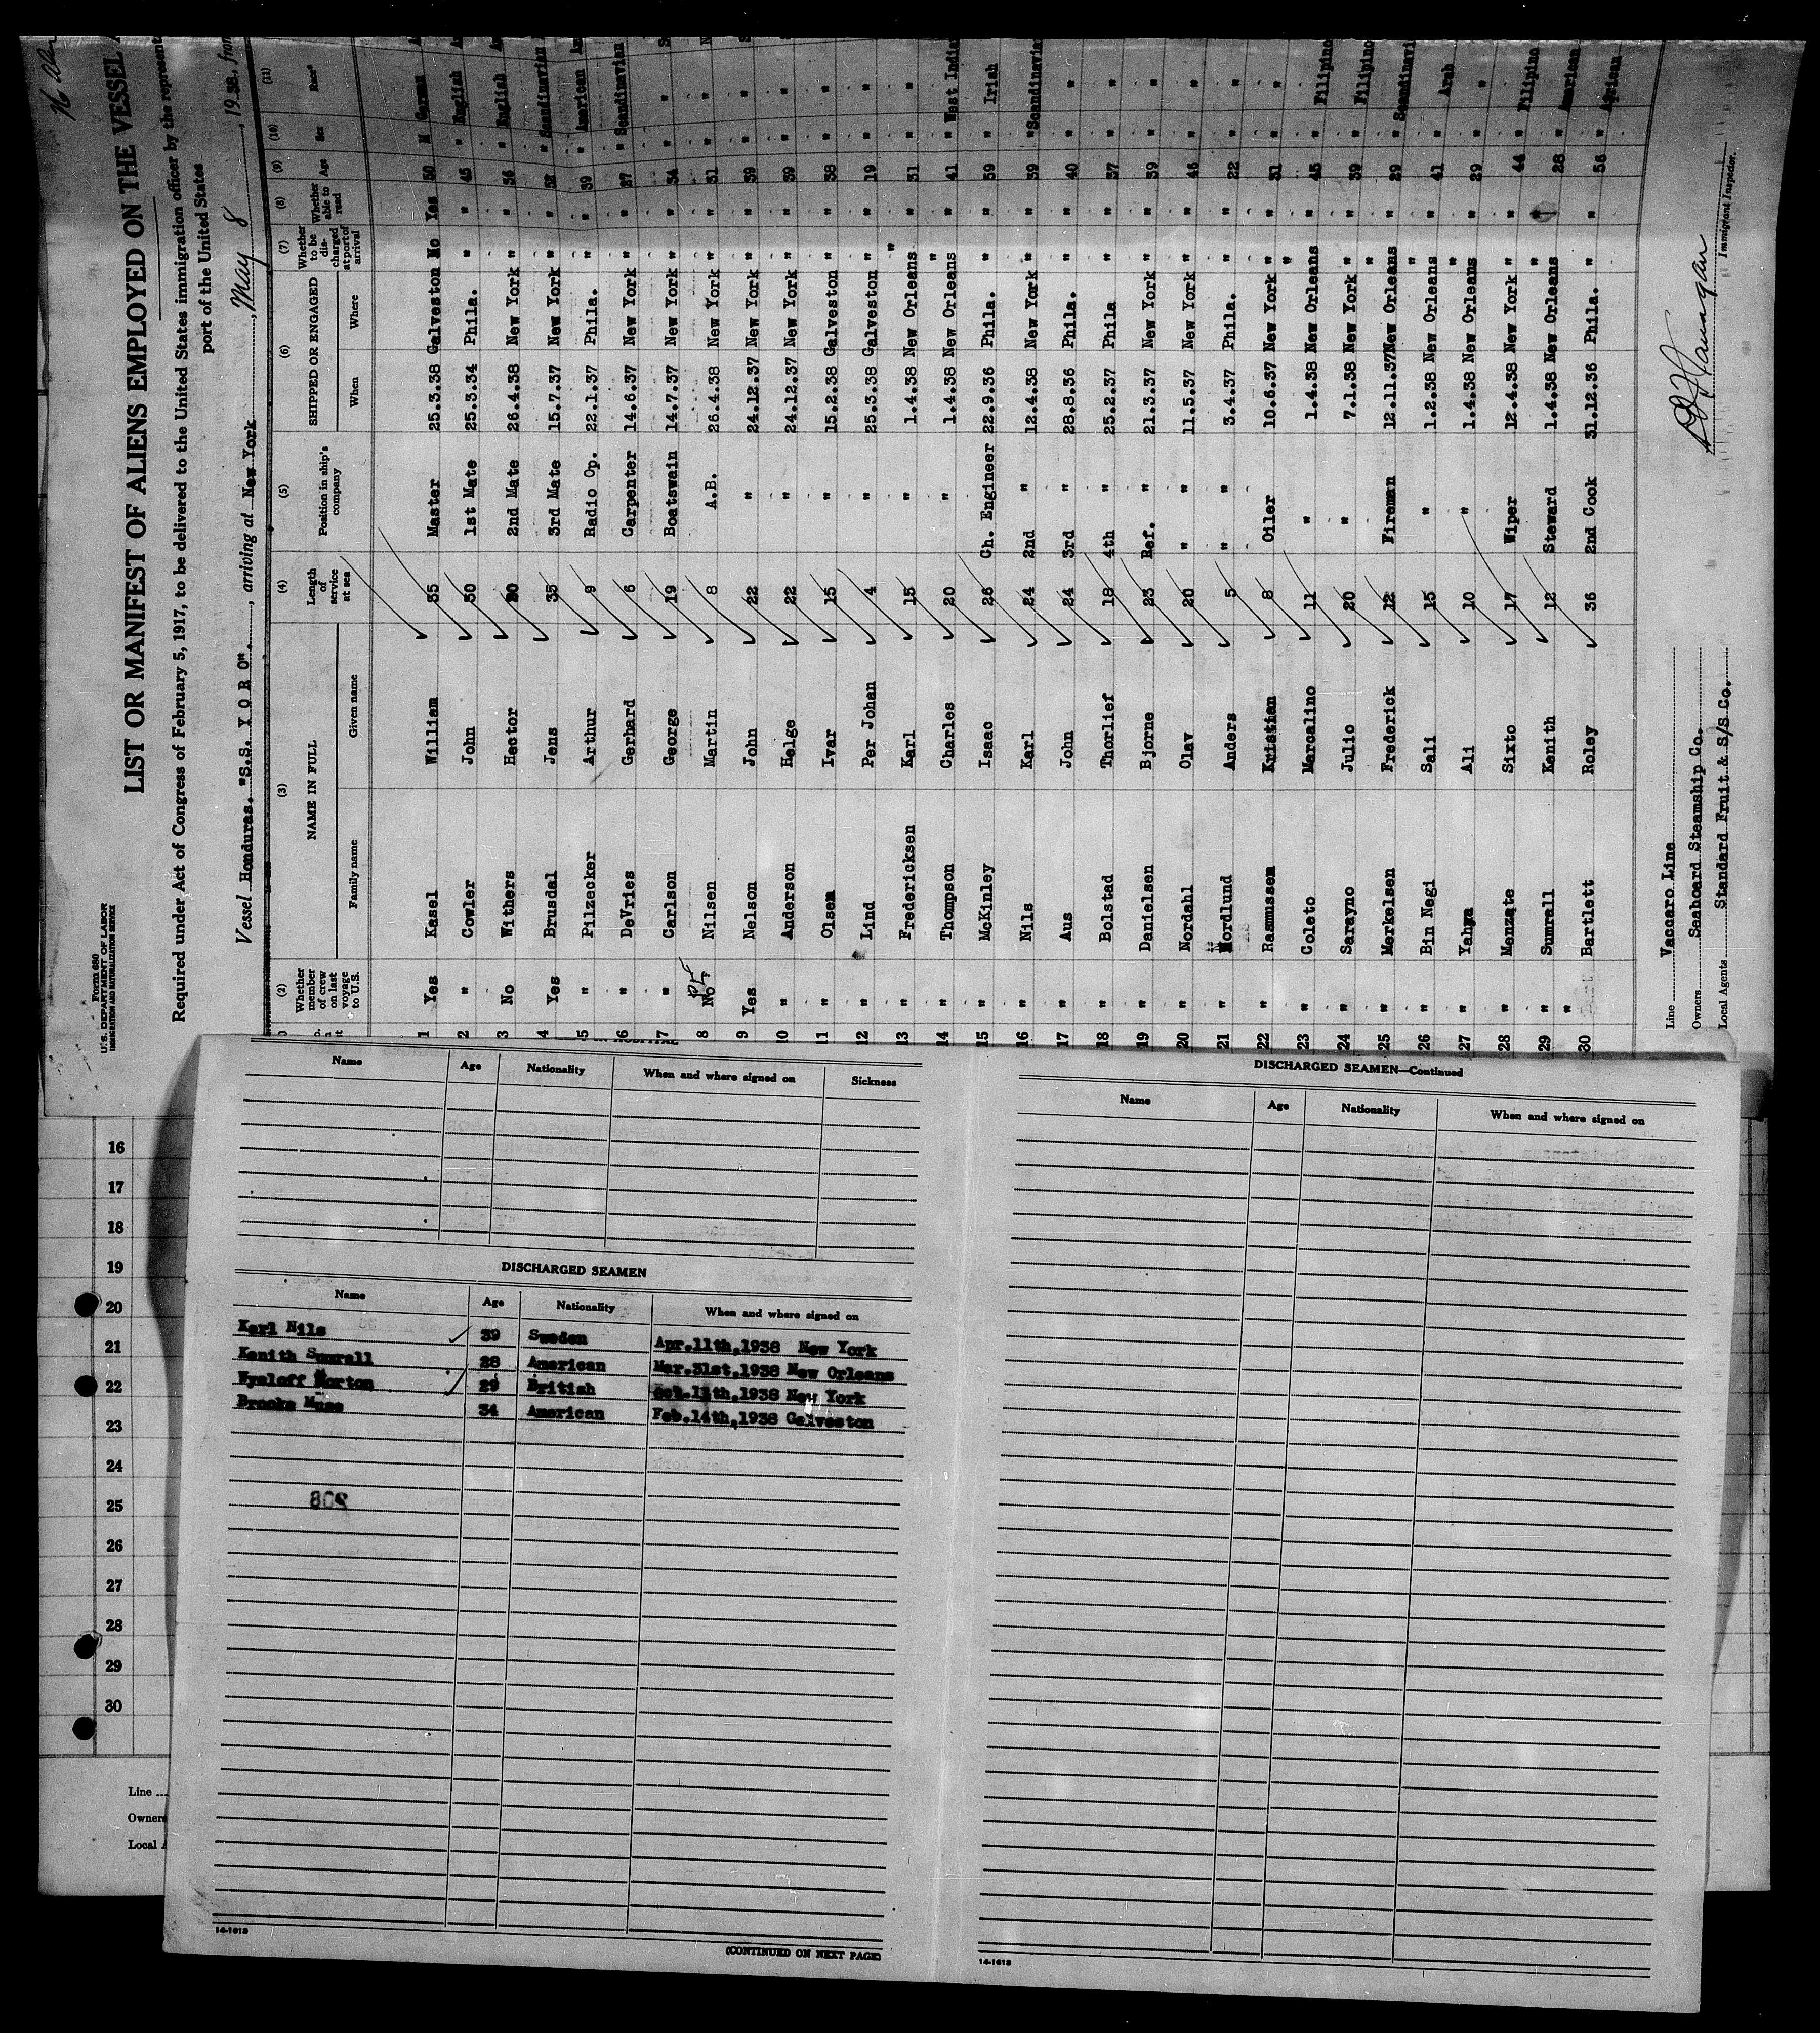 Form 680
U.S. DEPARTMENT OF LABOR
IMMIGRATION AND NATURALIZATION SERVICE
LIST OR MANIFEST OF ALIENS EMPLOYED ON THE VESSEL
Required under Act of Congress of February 5, 1917, to be delivered to the United States immigration officer by the represent
port of the United States
Vessel Honduras. "S.S. Y O R O". , arriving at New York , May 8 , 19 38, from
(2) (3) (4) (5) (6) (7) (8) (9) (10) (11)
Whether member of crew on last voyage to U.S. NAME IN FULL Length of service at sea Position in ship's company SHIPPED OR ENGAGED Whether to be discharged at port of arrival Whether able to read Age Sex Race*
Family name Given name When Where
1 Yes Kasel William 35 Master 25.3.38 Galveston No Yes 50 M German
2 " Cowler John 30 1st Mate 25.3.34 Phila. " " 45 " English
3 No Withers Hector 20 2nd Mate 26.4.38 New York " " 36 " English
4 Yes Brusdal Jens 35 3rd Mate 15.7.37 New York " " 52 " Scandinavian
5 " Pilzecker Arthur 9 Radio Op. 22.1.37 Phila. " " 39 " American
6 " DeVries Gerhard 6 Carpenter 14.6.37 New York " " 27 " Scandinavian
7 " Carlson George 19 Boatswain 14.7.37 New York " " 34 " "
8 No Nilsen Martin 8 A.B. 26.4.38 New York " " 31 " "
9 Yes Nelson John 22 " 24.12.37 New York " " 39 " "
10 " Anderson Helge 22 " 24.12.37 New York " " 39 " "
11 " Olsen Ivar 15 " 15.2.38 Galveston " " 38 " "
12 " Lind Per Johan 4 " 25.3.38 Galveston " " 19 " "
13 " Fredericksen Karl 15 " 1.4.38 New Orleans " " 31 " "
14 " Thompson Charles 20 " 1.4.38 New Orleans " " 41 " West Indi
15 " McKinley Isaac 26 Ch. Engineer 22.9.36 Phila. " " 59 " Irish
16 " Nils Karl 24 2nd " 12.4.38 New York " " 39 " Scandinavi
17 " Aus John 24 3rd " 28.8.36 Phila. " " 40 " "
18 " Bolstad Thorlief 18 4th " 25.2.37 Phila " " 37 " "
19 " Danielsen Bjorne 23 Ref. " 21.3.37 New York " " 39 " "
20 " Nordahl Olav 20 " " 11.5.37 New York " " 46 " "
21 " Nordlund Anders 5 " " 3.4.37 Phila. " " 22 " "
22 " Rasmussen Kristian 8 Oiler 10.6.37 New York " " 31 " "
23 " Coleto Marcalino 11 " 1.4.38 New Orleans " " 45 " Filipino
24 " Sarayno Julio 20 " 7.1.38 New York " " 39 " Filipino
25 " Merkelsen Frederick 12 Fireman 12.11.37 New Orleans " " 29 " Scandinavi
26 " Bin Negi Sali 15 " 1.2.38 New Orleans " " 41 " Arab
27 " Yahya Ali 10 " 1.4.38 New Orleans " " 29 " "
28 " Menzate Sixto 17 Wiper 12.4.38 New York " " 44 " Filipino
29 " Sumrall Kenith 12 Steward 1.4.38 New Orleans " " 28 " American
30 " Bartlett Roley 36 2nd Cook 31.12.36 Phila. " " 56 " African
Line Vaccaro Line
Owners Seaboard Steamship Co.
Local Agents Standard Fruit & S/S Co.
Immigrant Inspector.
Name Age Nationality When and where signed on Sickness
DISCHARGED SEAMEN
Name Age Nationality When and where signed on
Karl Nils 39 Sweden Apr.11th,1938 New York
Kenith Sumrall 28 American Mar.31st,1938 New Orleans
Wyaloff Norton 29 British 1938 New York
Brooks Muse 34 American Feb.14th,1938 Galveston
208
14-1618
(CONTINUED ON NEXT PAGE)
DISCHARGED SEAMEN—Continued
Name Age Nationality When and where signed on
14-1618
16
17
18
19
20
21
22
23
24
25
26
27
28
29
30
Line
Owners
Local A